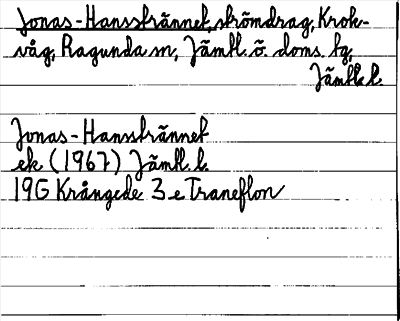 Jonas-Hansstrännet, strömdrag, Krok-
våg, Ragunda sn, Jämtl. ö. doms. tg,
Jämtl. l.
Jonas-Hansstrännet
ek (1967) Jämtl. l.
19G Krångede 3 e Traneflon